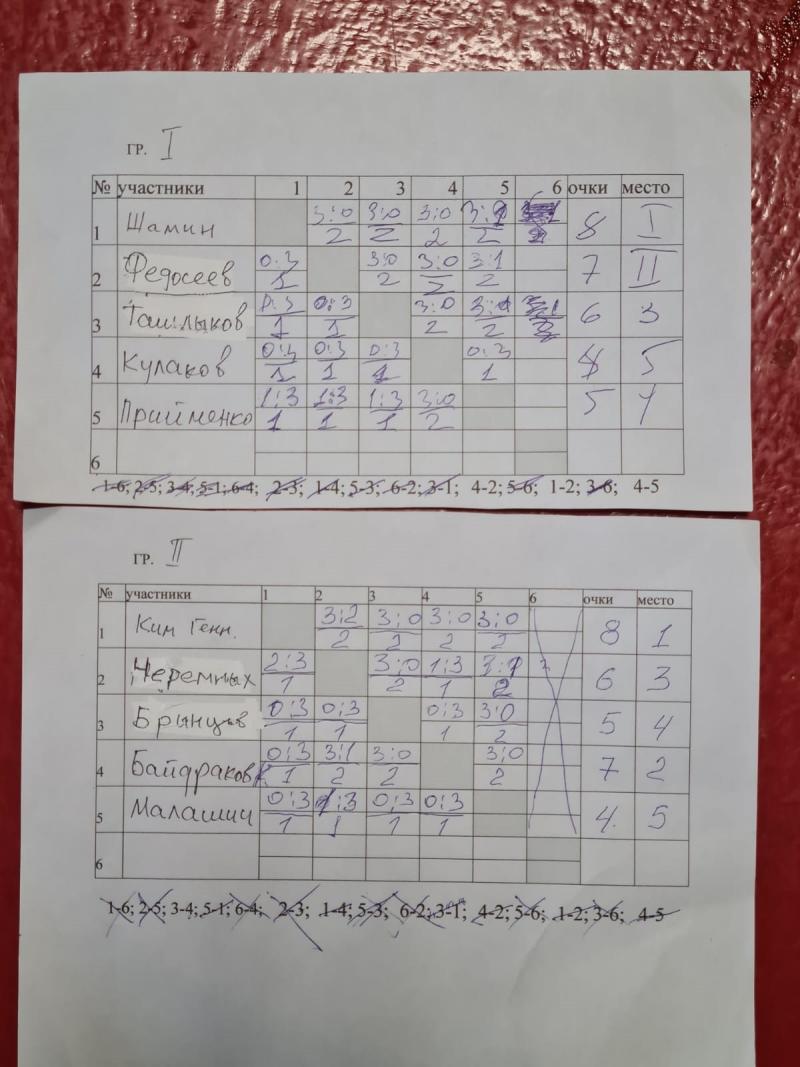 ГР. I
№ участники 1 2 3 4 5 6 очки место
1 Шамин 3:0 3:0 3:0 3:1 8 I
2 2 2 2
2 Федосеев 0:3 3:0 3:0 3:1 7 II
1 2 2 2
3 Ташлыков 0:3 0:3 3:0 3:1 6 3
1 1 2 2
4 Кулаков 0:3 0:3 0:3 0:3 5
1 1 1 1
5 Прийменко 1:3 1:3 1:3 3:0 5 4
1 1 1 2
6
1-6; 2-5; 3-4; 5-1; 6-4; 2-3; 1-4; 5-3; 6-2; 3-1; 4-2; 5-6; 1-2; 3-6; 4-5
ГР. II
№ участники 1 2 3 4 5 6 очки место
1 Ким Генн. 3:2 3:0 3:0 3:0 8 1
2 2 2 2
2 Черемных 2:3 3:0 1:3 3:1 6 3
1 2 1 2
3 Брынцев 0:3 0:3 0:3 3:0 5 4
1 1 1 2
4 Байдраков 0:3 3:1 3:0 3:0 7 2
1 2 2 2
5 Малашин 0:3 1:3 0:3 0:3 4. 5
1 1 1 1
6
1-6; 2-5; 3-4; 5-1; 6-4; 2-3; 1-4; 5-3; 6-2; 3-1; 4-2; 5-6; 1-2; 3-6; 4-5